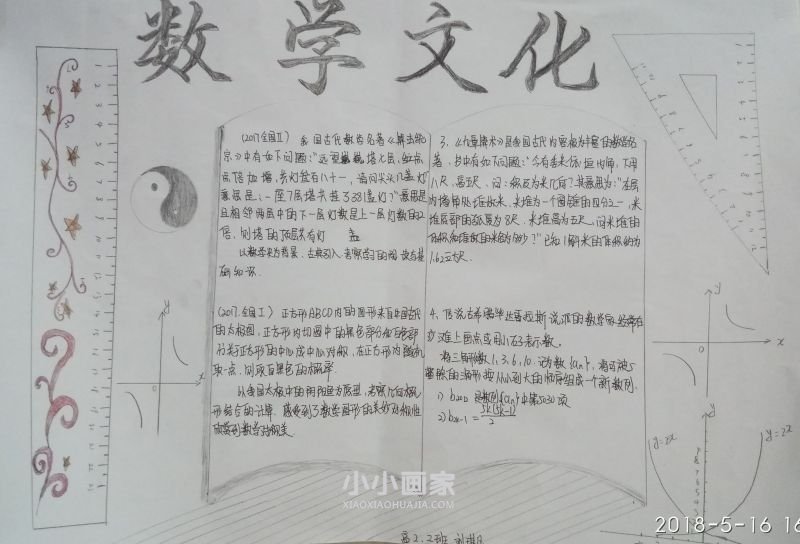 数学文化
(2017全国Ⅱ) 我国古代数学名著《算法统
宗》中有如下问题：“远望巍巍塔七层，红点
点倍加增，共灯盏有八十一，请问尖头几盏灯
意思是：一座7层塔共挂了381盏灯”意思是
且相邻两层中的下一层灯数是上一层灯数的2
倍，则塔的顶层共有灯 盏
以数学史为背景，古典引入，考察学习的阅
(2017.全国Ⅰ) 正方形ABCD内的图形来自中国古代
的太极图，正方形内切圆中的黑色部分和白色部
分关于正方形的中心成中心对称，在正方形内随机
取一点，则取自黑色的概率
以我国太极中的阴阳鱼为原型，考察几何概
形结合的计算，感受到了数学图形的美妙对称性
3、《九章算术》是我国古代内容极为丰富的数学名
著，书中有如下问题：“今有委米依垣内角，下周
八尺，高五尺，问：积及为米几何？其意思为：“在屋
内墙角处堆放米，米堆为一个圆锥的四分之一，米
堆底部的弧度为8尺，米堆高为五尺，问米堆的
体积和堆放的米各为多少？”已知1斛米的体积约为
1.62立方尺
4、传说古希腊毕达哥拉斯派的数学家经常在
沙滩上画点或用小石子表示数，
将三角形数1、3、6、10…记为数{an}，将可被5
整除的三角形按从小到大的顺序组成一个新数列
1) b2012是数列{an}中第5030项
2) b2k-1=5k(5k-1)/2
y
x
0
y
x
0
y=2x
y=2x
小小画家
XIAOXIAOHUAJIA.COM
高2.2班
2018-5-16 16